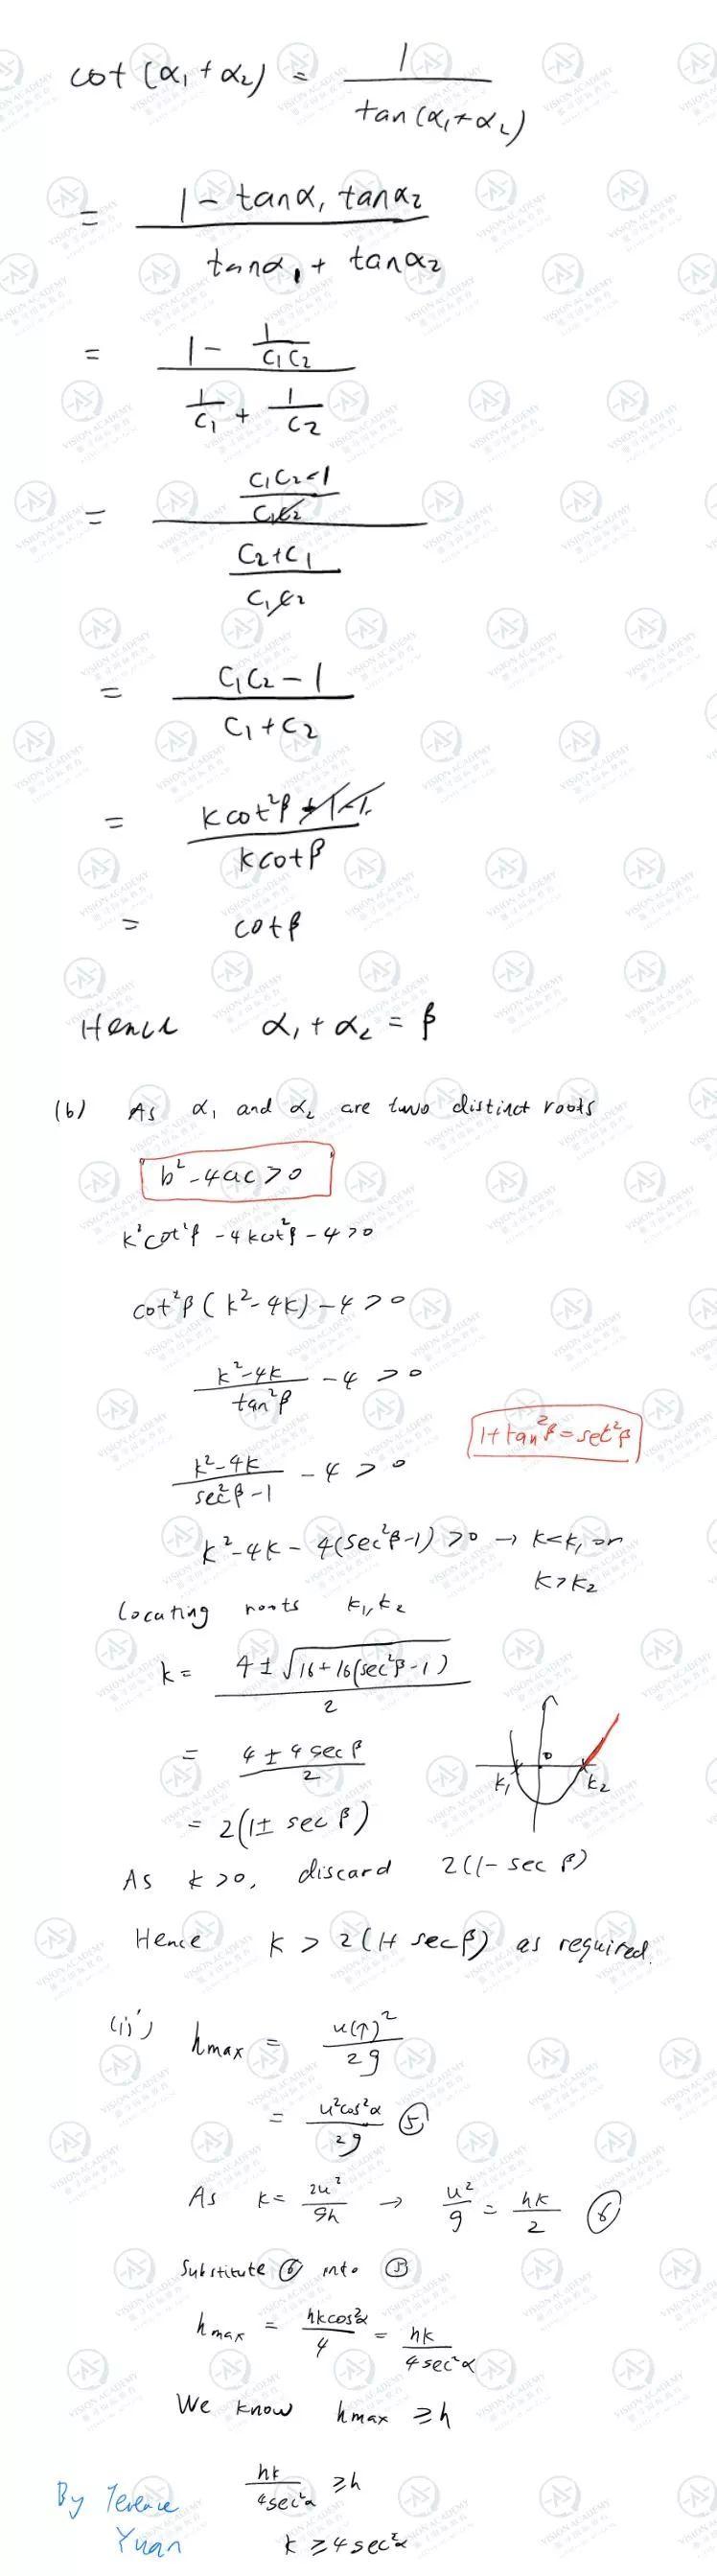 cot (α₁ + α₂) = 1 / tan(α₁+α₂)
= (1 - tanα₁ tanα₂) / (tanα₁ + tanα₂)
= (1 - 1/(c₁c₂)) / (1/c₁ + 1/c₂)
= ((c₁c₂-1)/(c₁c₂)) / ((c₂+c₁)/(c₁c₂))
= (c₁c₂ - 1) / (c₁+c₂)
= (kcot²β +1-1) / (kcotβ)
= cotβ
Hence α₁ + α₂ = β
(b) As α₁ and α₂ are two distinct roots
b²-4ac>0
k²cot²β - 4kcot²β - 4 >0
cot²β (k²-4k) - 4 > 0
(k²-4k) / tan²β - 4 > 0
1+tan²β = sec²β
(k²-4k) / (sec²β-1) - 4 > 0
k²-4k - 4(sec²β-1) >0 → k<k₁ or
k>k₂
Locating roots k₁,k₂
k = (4 ± √(16+16(sec²β-1))) / 2
= (4 ± 4 sec β) / 2
= 2(1± sec β)
0
k₁ k₂
As k >0, discard 2(1- sec β)
Hence k > 2(1+ secβ) as required.
(ii) hmax = u(↑)² / 2g
= u²cos²α / 2g ⑤
As k = 2u² / gh → u²/g = hk/2 ⑥
Substitute ⑥ into ⑤
hmax = hkcos²α / 4 = hk / 4sec²α
We know hmax ≥h
hk / 4sec²α ≥h
By Terence
Yuan
k ≥4sec²α
VISION ACADEMY